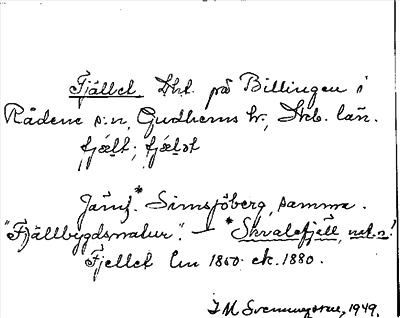 Fjället. Dht. på Billingen i
Rådene s:n, Gudhems hr., Skb. län.
fjælt; fjælət
Jämf.* Simsjöberg, samma.
"Fjällbygdsnatur". — *Skvalefjäll, nat.n!
Fjellet lm 1850. ek. 1880.
J M Svenningsson, 1949.